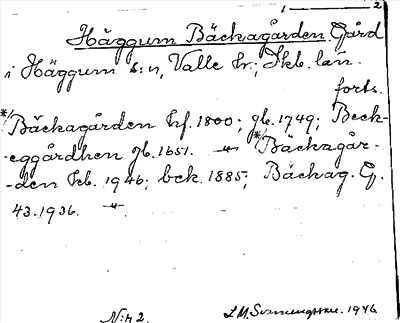 1 — 2
Häggum Bäckagården Gård
i Häggum s:n, Valle hr.; Skb. län.
forts.
*/Bäckagården hf. 1800; gb. 1749; Beck-
eggårdhen jb. 1651. —"— */Bäckagår-
-den kb. 1946; bek. 1885; Bäckag. G.
43. 1936. —"—
N:r 2. L.M. 1946